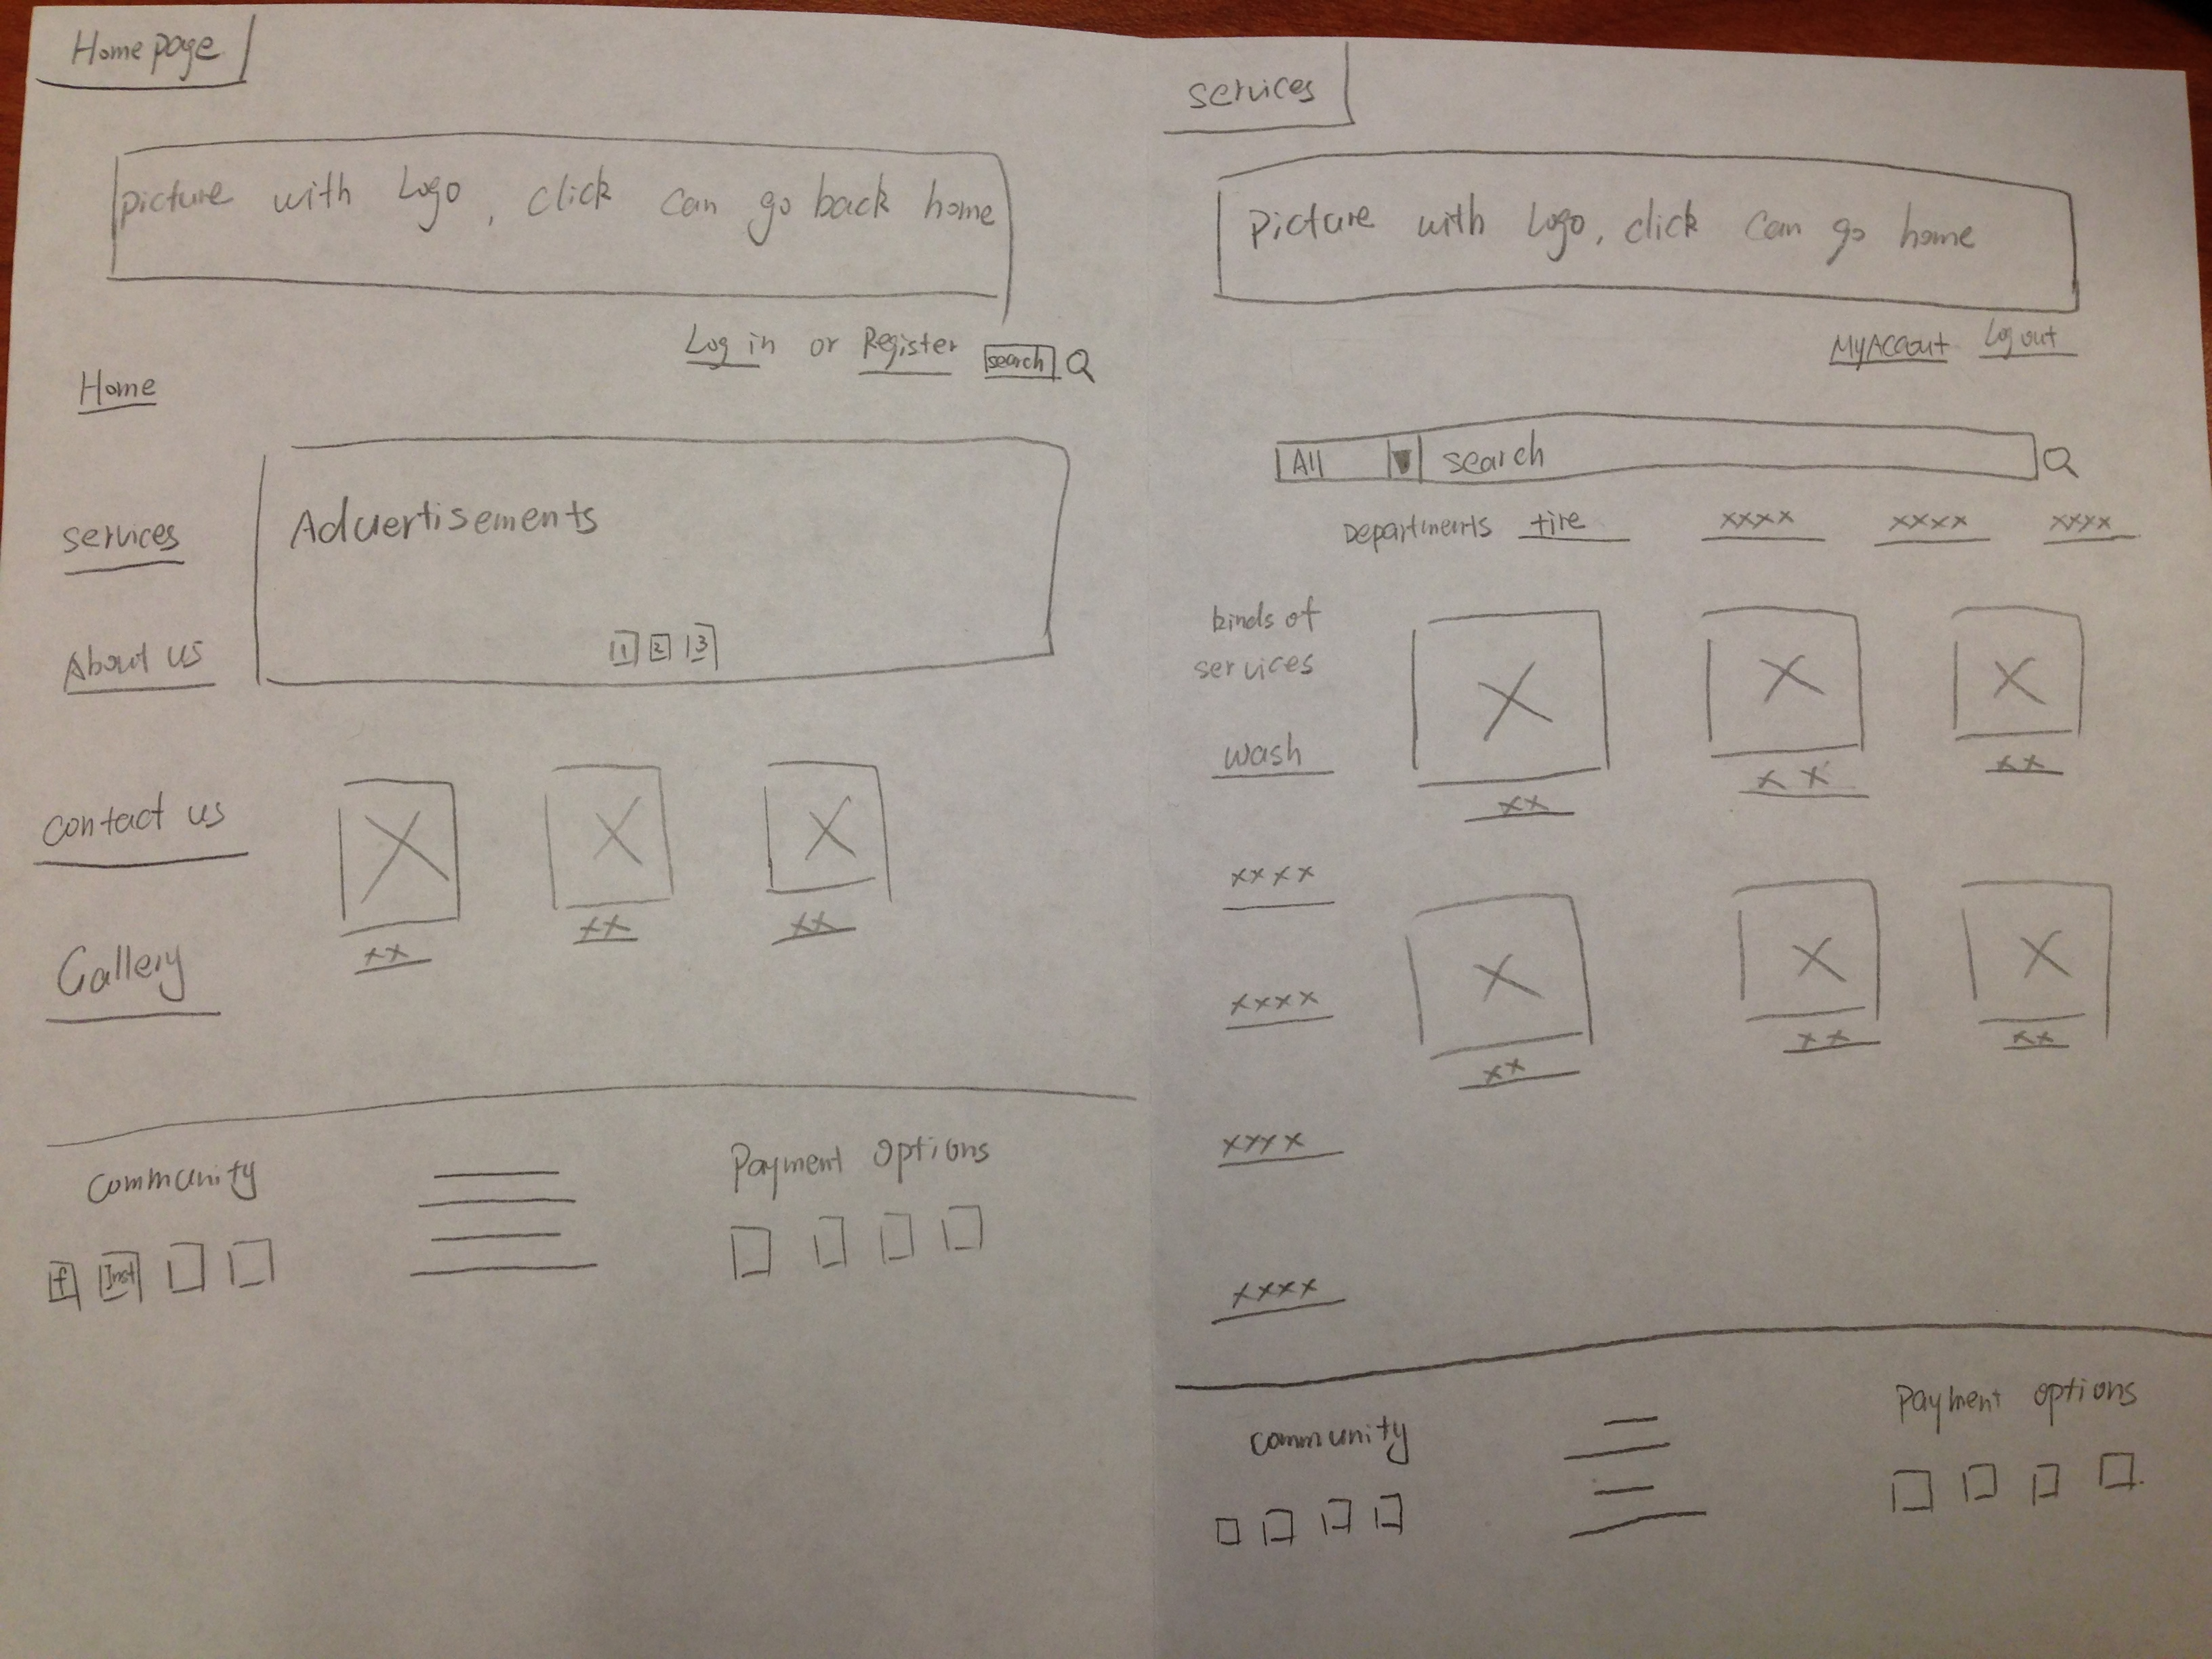 Home page
picture with Logo, click can go back home
Log in or Register search
Home
services
About us
contact us
Gallery
Advertisements
1 2 3
xx xx xx
community
f Inst
Payment options
services
Picture with Logo, click can go home
MyAccout Log out
All search
Departments tire xxxx xxxx xxxx
kinds of
services
wash
xxxx
xxxx
xxxx
xxxx
xx xx xx
xx xx xx
community
Payment options